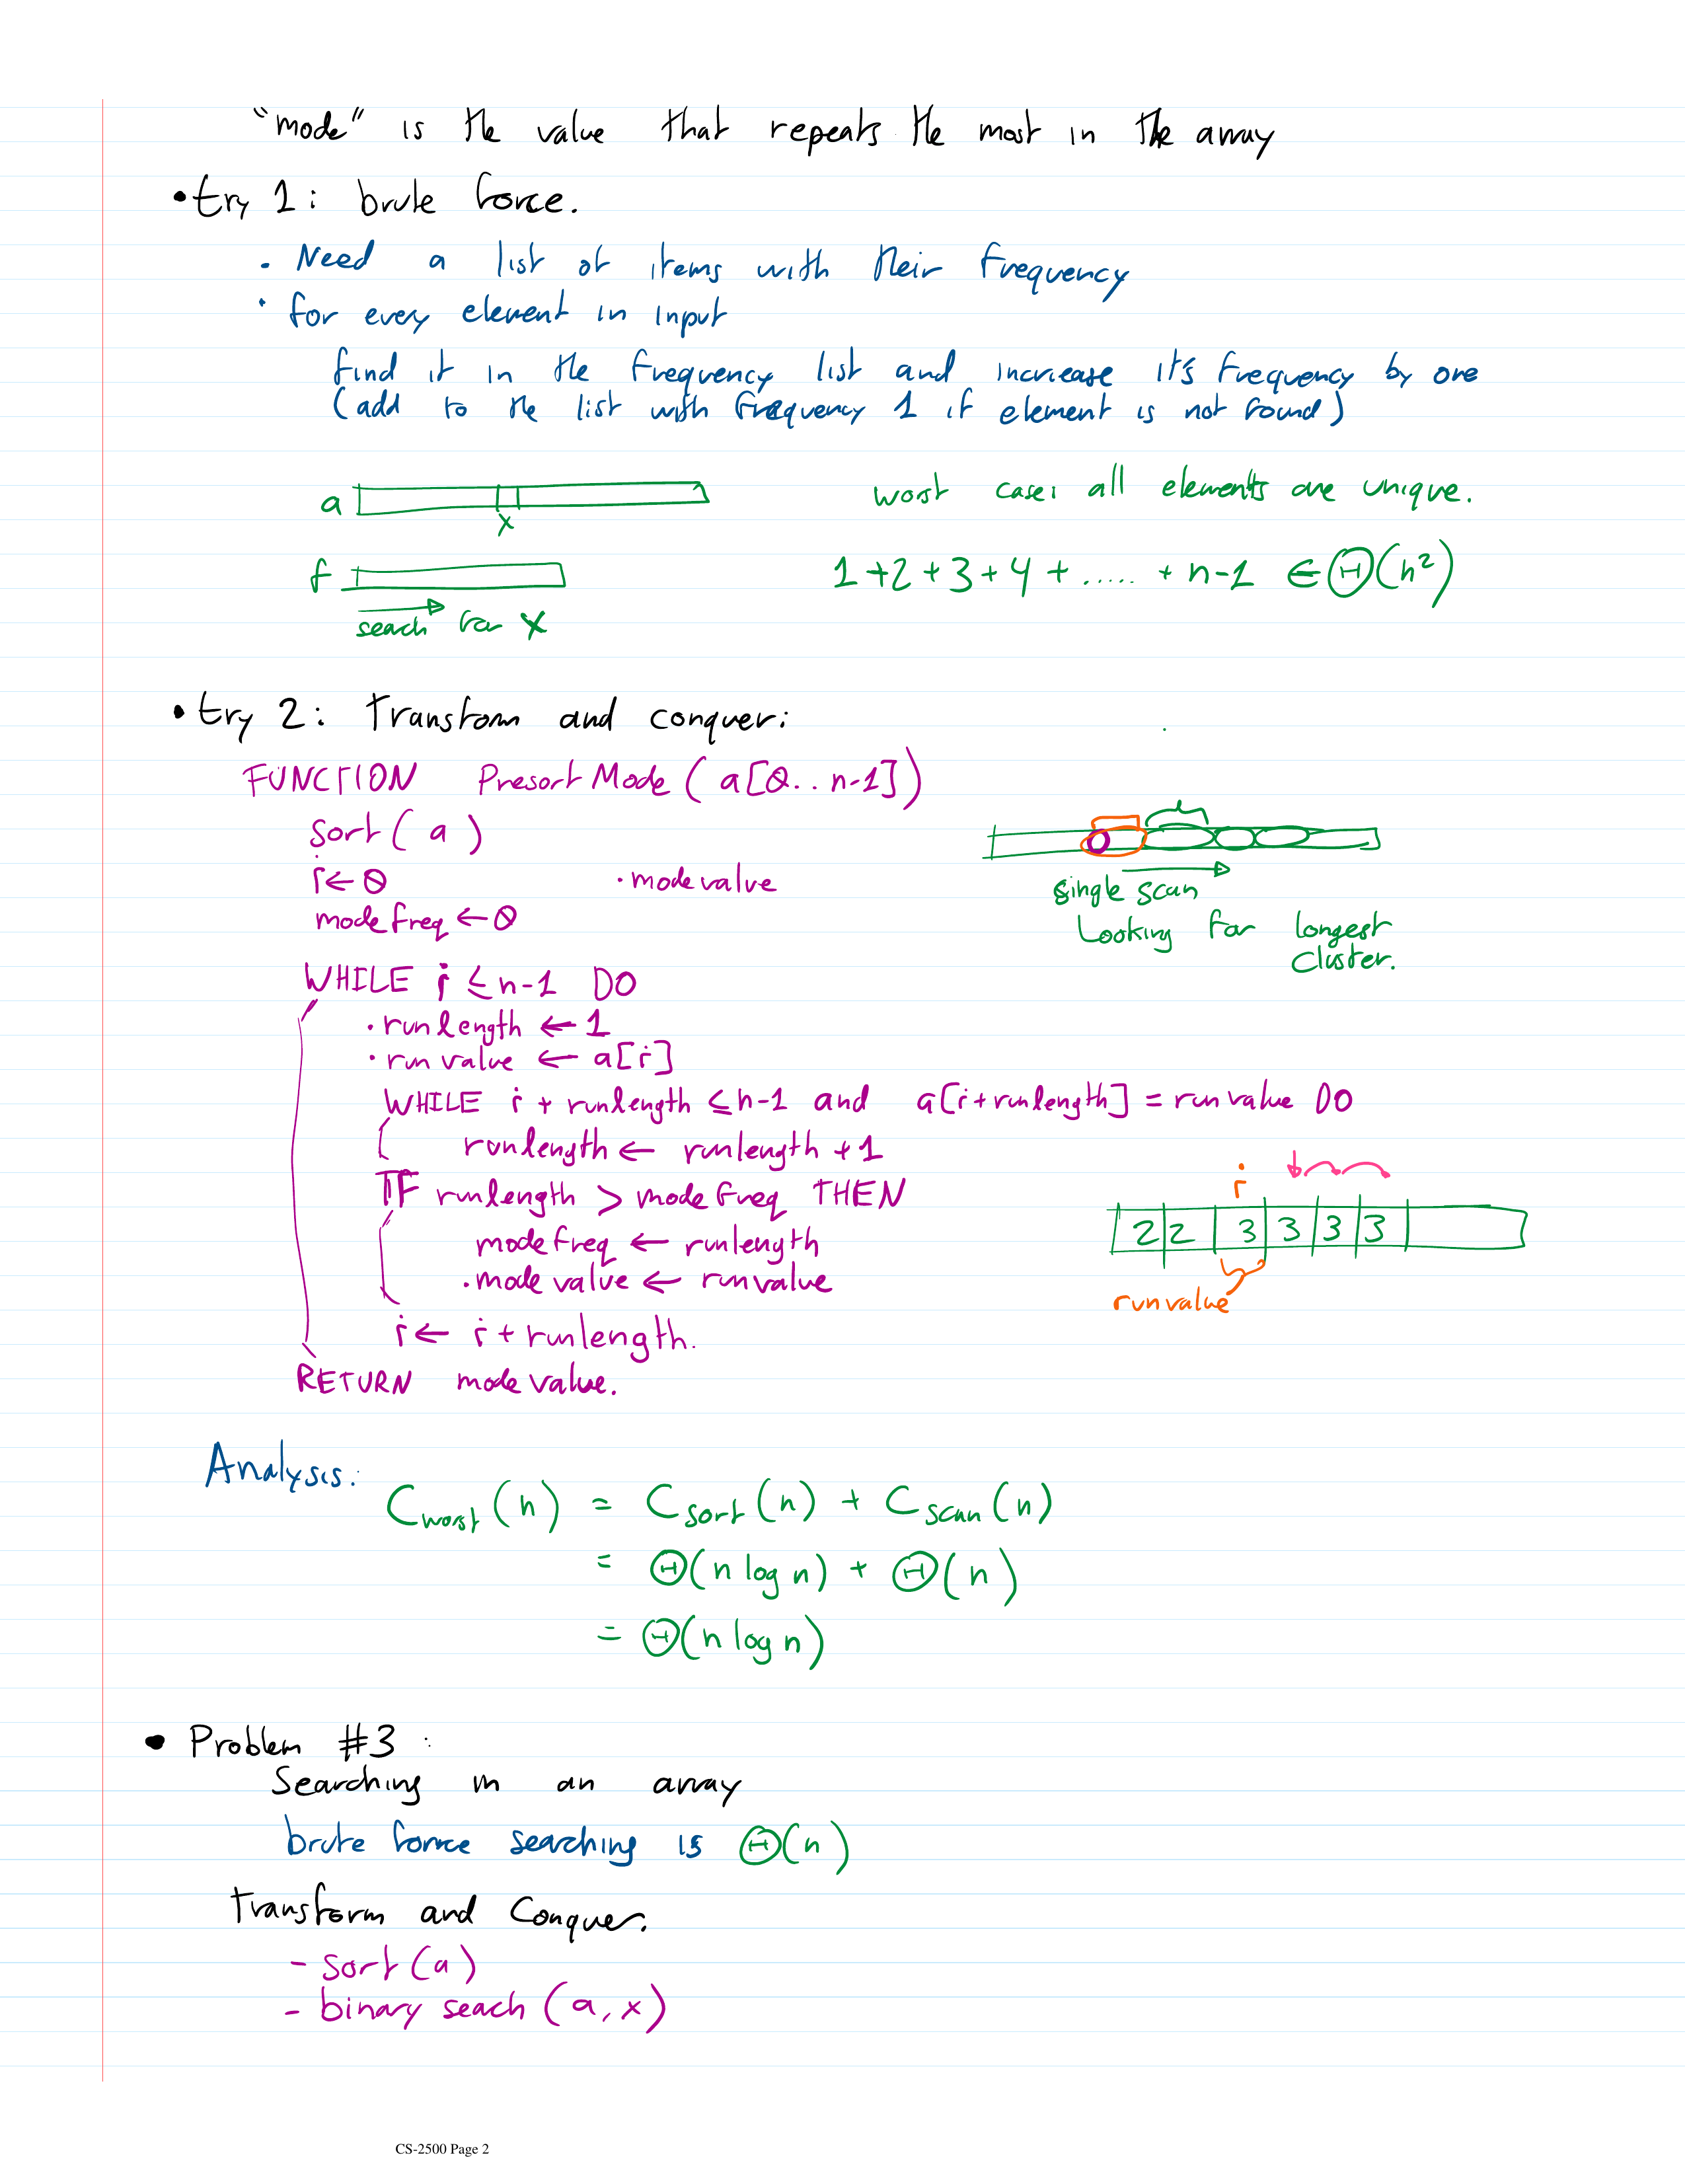 "mode" is the value that repeats the most in the array
• try 1: brute force.
• Need a list of items with their frequency
• for every element in input
find it in the frequency list and increase it's frequency by one
(add to the list with frequency 1 if element is not found)
a
x
worst case: all elements are unique.
f
1+2+3+4+.....+n-1 ∈ Θ(n²)
seach for x
• try 2: Transform and conquer:
FUNCTION PresortMode (a[0..n-1])
sort(a)
i ← 0
• modevalue
modefreq ← 0
single scan
Looking for longest
cluster.
WHILE i ≤ n-1 DO
• runlength ← 1
• runvalue ← a[i]
WHILE i + runlength ≤ n-1 and a[i+runlength] = runvalue DO
runlength ← runlength + 1
IF runlength > modefreq THEN
modefreq ← runlength
• modevalue ← runvalue
i ← i + runlength.
RETURN modevalue.
i
2 2 3 3 3 3
runvalue
Analysis:
C worst (n) = C sort (n) + C scan (n)
= Θ(n log n) + Θ(n)
= Θ(n log n)
• Problem #3:
Searching in an array
brute force searching is Θ(n)
Transform and Conquer.
- sort(a)
- binary seach (a, x)
CS-2500 Page 2